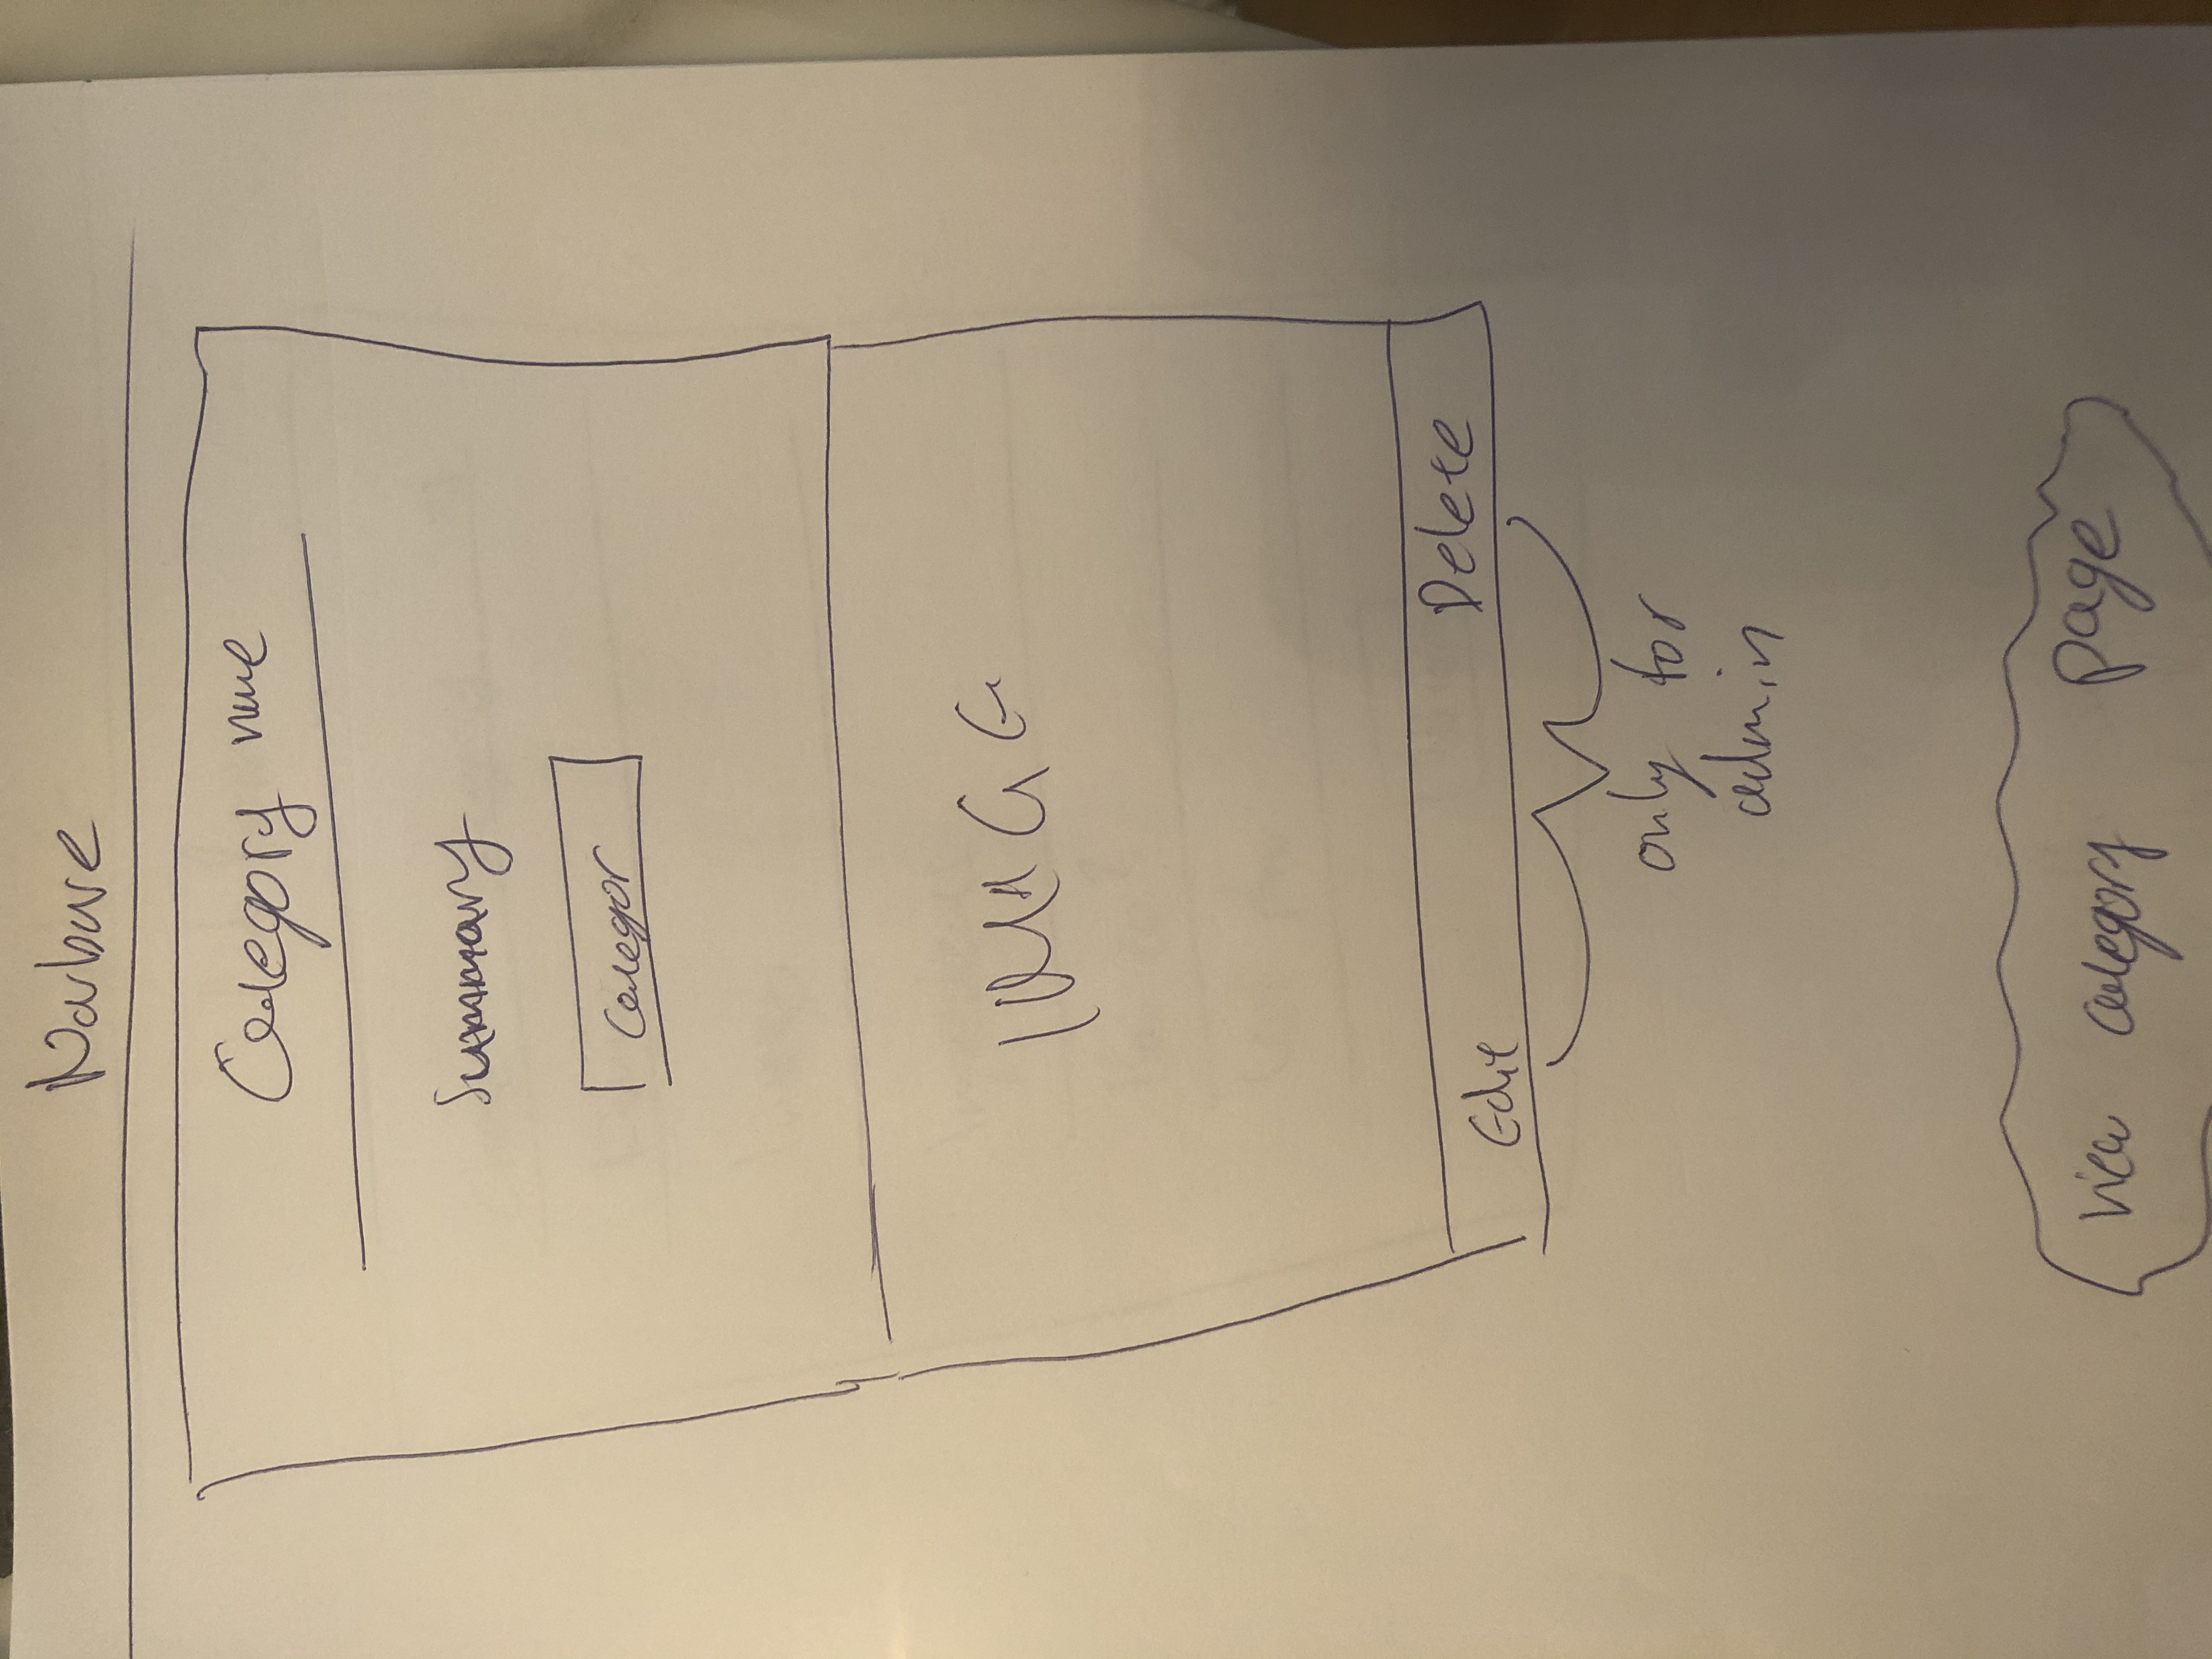 Navbar
Category name
Summary
Categor
IMAGE
Edit Delete
only for
admin
View category page